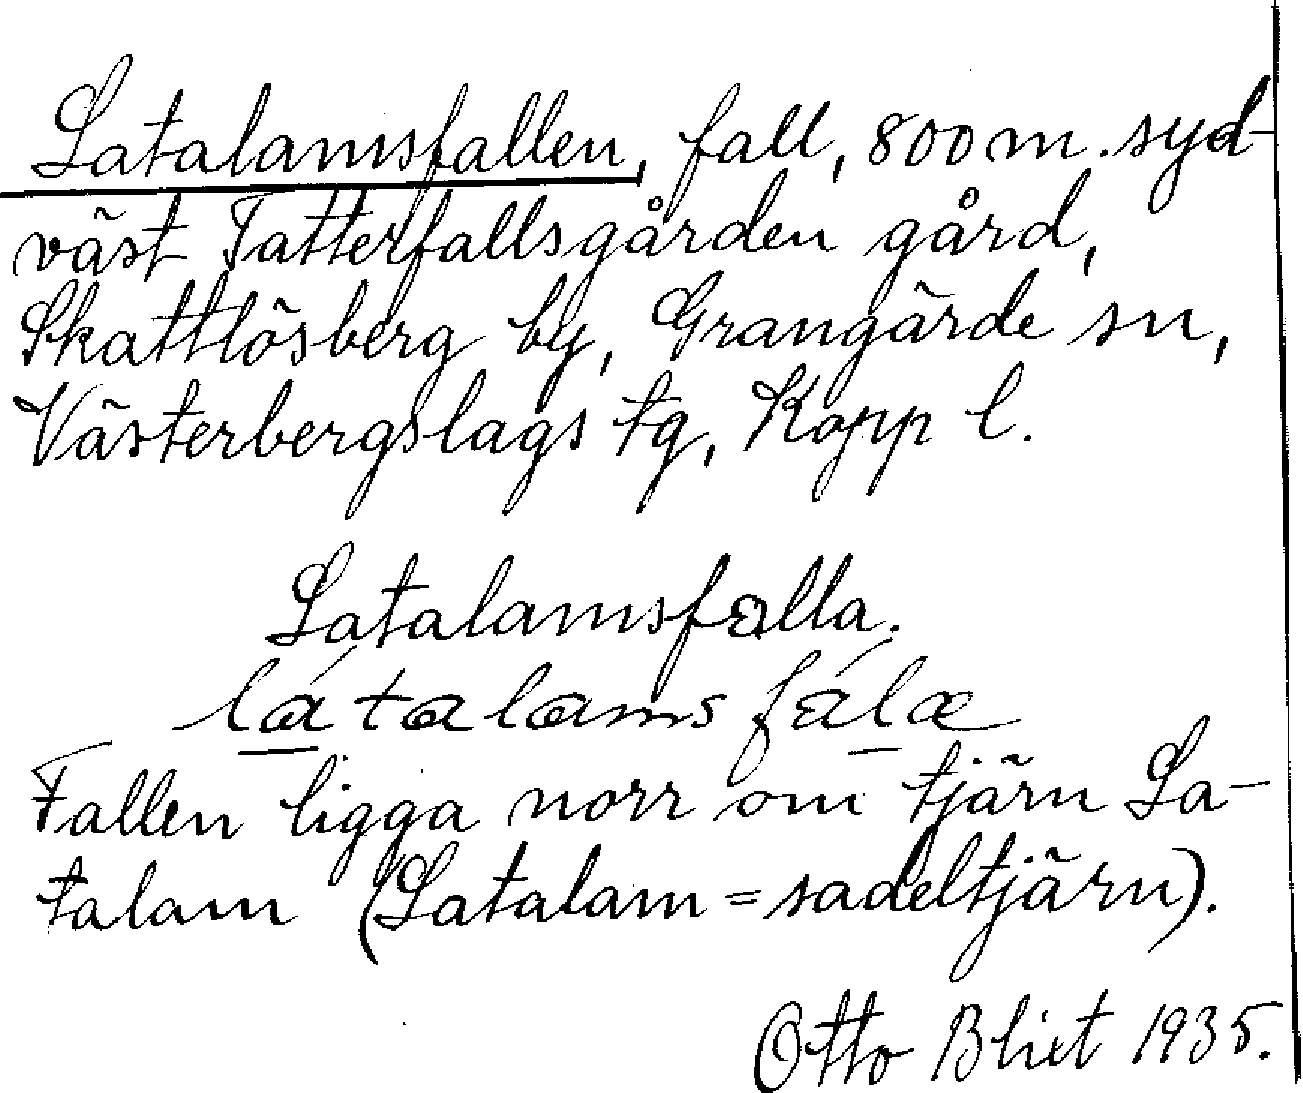 Latalamsfallen, fall, 800 m. syd-
väst Tatterfallsgården gård,
Skattlösberg by, Grangärde sn,
Västerbergslags tg, Kopp l.
Latalamsfalla.
látalamsfála
Fallen ligga norr om tjärn La-
talam (Latalam = sadeltjärn).
Otto Blixt 1935.